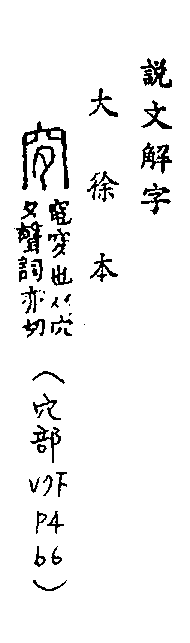 説文解字
大徐本
穸
窀穸也从穴
夕聲詞亦切
(穴部
V7下
P4
b6)